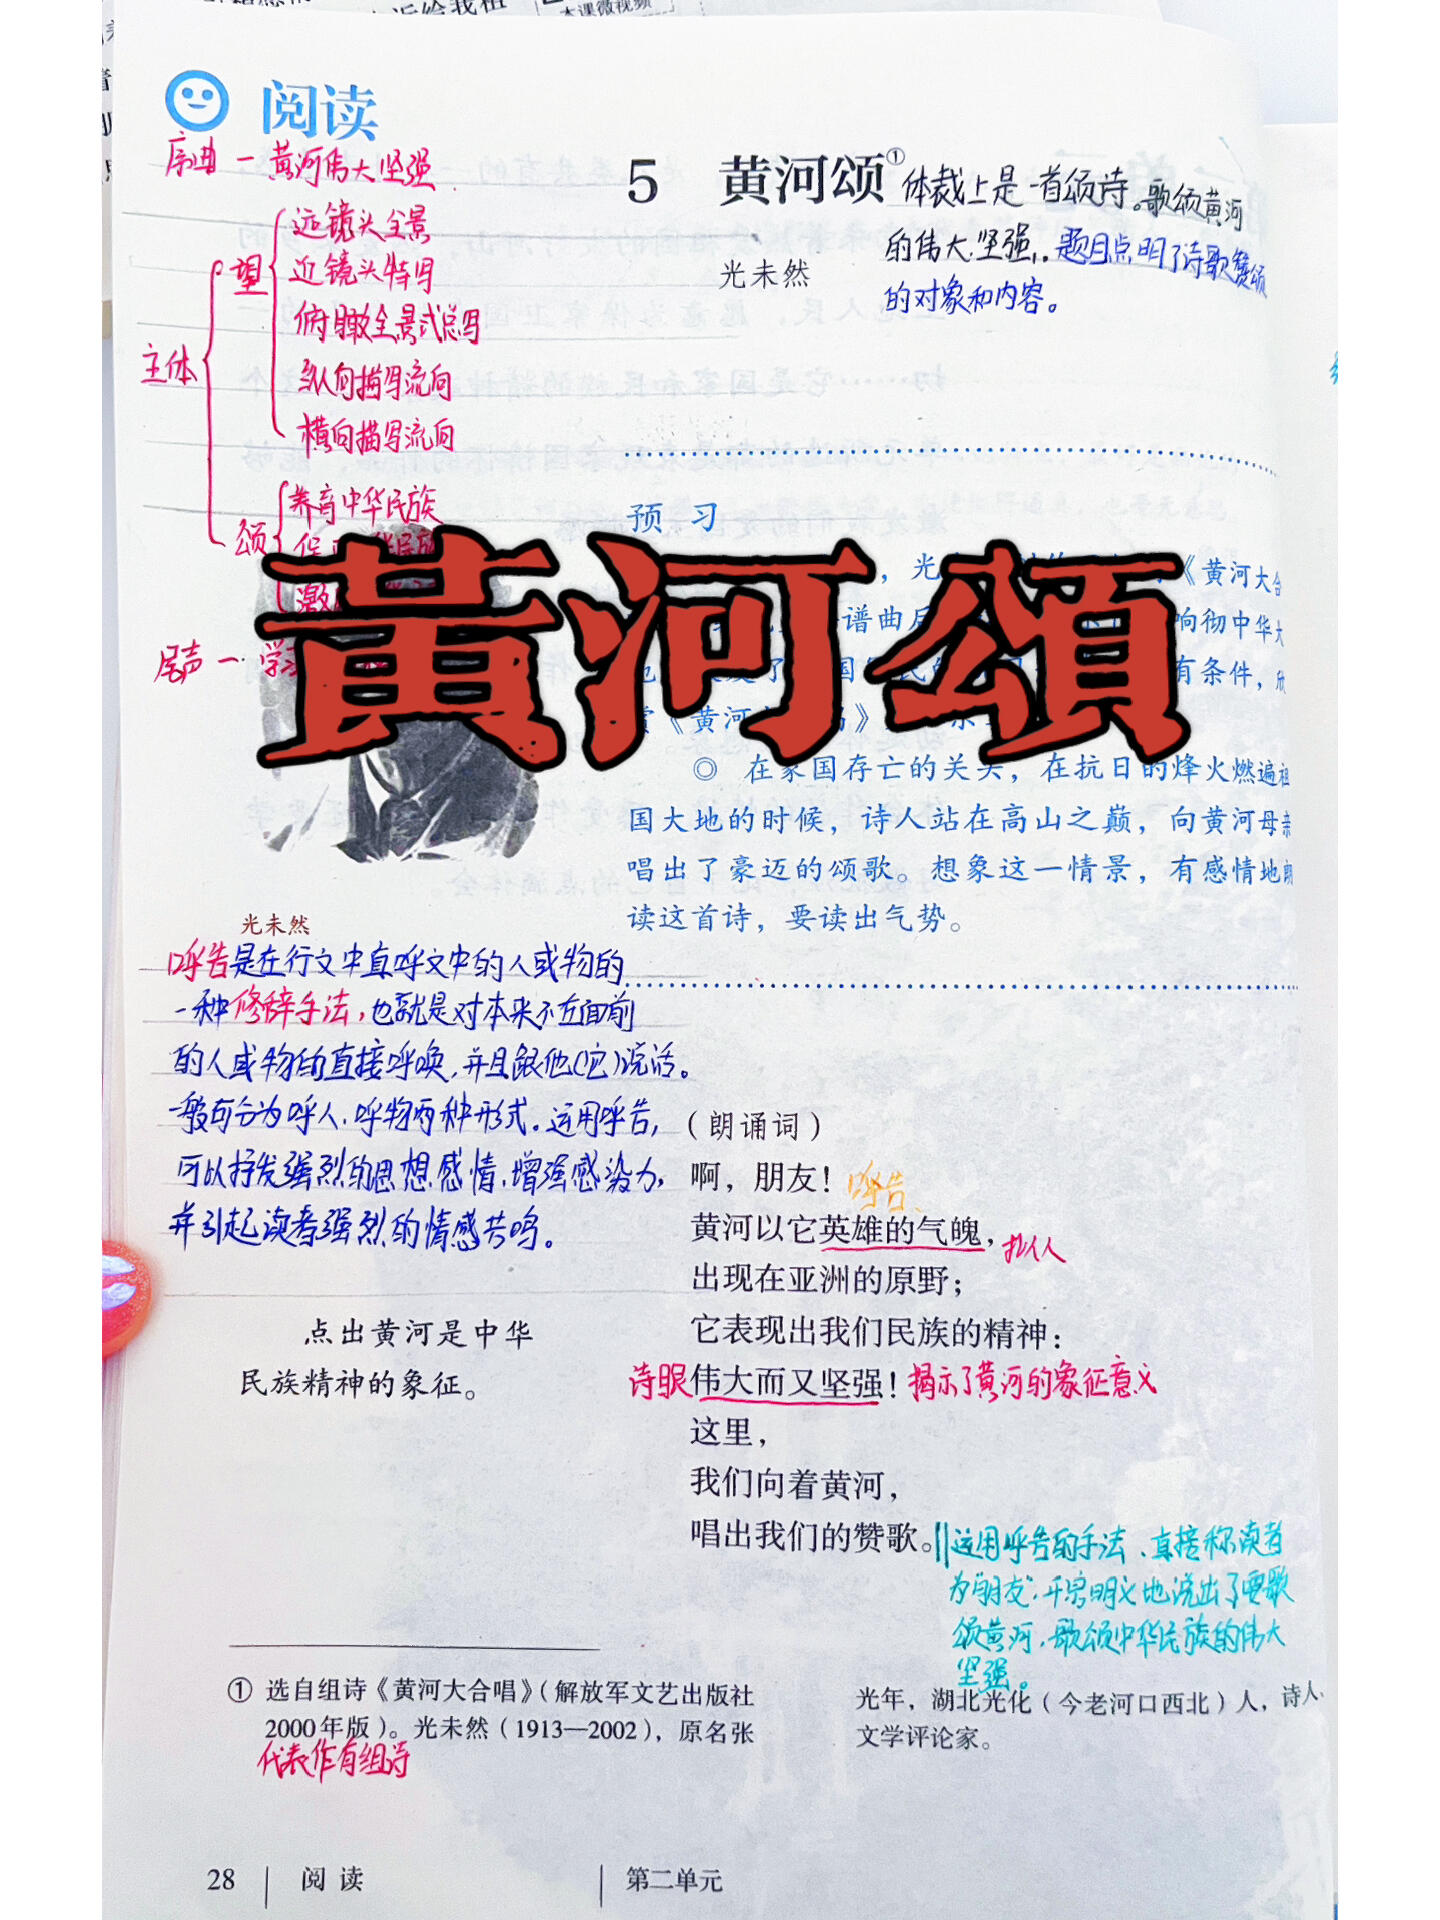 本课微视频
阅读
序曲一黄河伟大坚强
远镜头全景
望
近镜头特写
俯瞰全景式总写
主体
纵向描写流向
横向描写流向
养育中华民族
颂
尾声一学
5 黄河颂①
体裁上是一首颂诗。歌颂黄河
的伟大坚强,.题目点明了诗歌赞颂
的对象和内容。
光未然
预习
,光
《黄河大合
谱曲后
响彻中华大
有条件,欣
赏《黄河
◎ 在家国存亡的关头,在抗日的烽火燃遍祖
国大地的时候,诗人站在高山之巅,向黄河母亲
唱出了豪迈的颂歌。想象这一情景,有感情地朗
读这首诗,要读出气势。
黄河颂
光未然
呼告是在行文中直呼文中的人或物的
一种修辞手法,也就是对本来不在面前
的人或物的直接呼唤,并且跟他(它)说话。
一般可分为呼人、呼物两种形式。运用呼告,
可以抒发强烈的思想感情,增强感染力,
并引起读者强烈的情感共鸣。
点出黄河是中华
民族精神的象征。
(朗诵词)
啊,朋友! 呼告、
黄河以它英雄的气魄, 拟人
出现在亚洲的原野;
它表现出我们民族的精神:
诗眼 伟大而又坚强! 揭示了黄河的象征意义
这里,
我们向着黄河,
唱出我们的赞歌。
运用呼告的手法、直接称读者
为朋友,开宗明义地说出了要歌
颂黄河、歌颂中华民族的伟大
坚强。
① 选自组诗《黄河大合唱》(解放军文艺出版社
2000年版)。光未然(1913—2002),原名张
光年,湖北光化(今老河口西北)人,诗人、
文学评论家。
代表作有组诗
28 阅读
第二单元